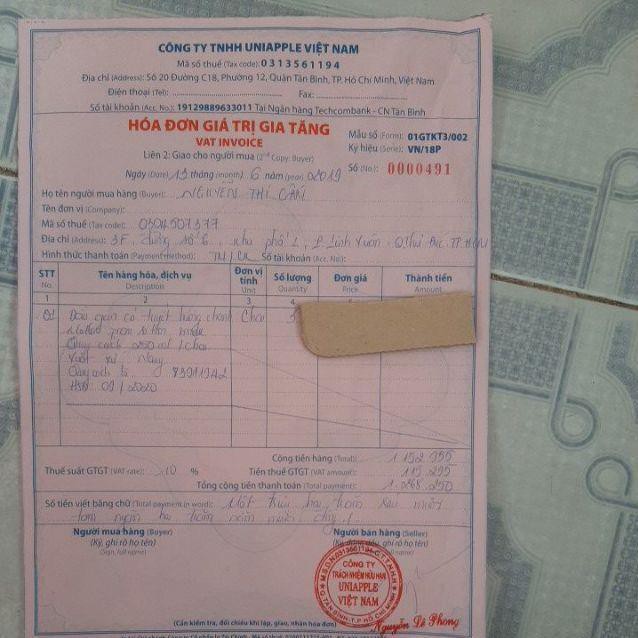 CÔNG TY TNHH UNIAPPLE VIỆT NAM
Mã số thuế (Tax code): 0313561194
Địa chỉ (Address): Số 20 Đường C18, Phường 12, Quận Tân Bình, TP. Hồ Chí Minh, Việt Nam
Điện thoại (Tel): Fax:
Số tài khoản (Acc. No.): 19129889633011 Tại Ngân hàng Techcombank - CN Tân Bình
HÓA ĐƠN GIÁ TRỊ GIA TĂNG
VAT INVOICE
Mẫu số (Form): 01GTKT3/002
Ký hiệu (Serie): VN/18P
Liên 2: Giao cho người mua (2nd Copy: Buyer)
Số (No.): 0000491
Ngày (Date) 13 tháng (month) 6 năm (year) 2019
Họ tên người mua hàng (Buyer): NGUYEN THI
Tên đơn vị (Company):
Mã số thuế (Tax code): 0304507377
Địa chỉ (Address): 3F, đường số 6, khu phố 1, P. Linh Xuân, Q Thủ Đức, TP
Hình thức thanh toán (Payment method): TM/CK Số tài khoản (Acc. No.):
STT Tên hàng hóa, dịch vụ Đơn vị tính Số lượng Đơn giá Thành tiền
No. Description Unit Quantity Price Amount
1 2 3
01 Chai
Quy cách 250 ml / chai
Xuất xứ
HSD 09/2020
Cộng tiền hàng (Total): 1.152.955
Thuế suất GTGT (VAT rate): 10 % Tiền thuế GTGT (VAT amount): 115.295
Tổng cộng tiền thanh toán (Total payment): 1.268.250
Số tiền viết bằng chữ (Total payment in word): Một triệu hai trăm sáu mươi
tám ngàn hai trăm năm mươi
Người mua hàng (Buyer) Người bán hàng (Seller)
(Ký, ghi rõ họ tên) (Ký, đóng dấu, ghi rõ họ tên)
(Sign, full name)
CÔNG TY
TRÁCH NHIỆM HỮU HẠN
UNIAPPLE
VIỆT NAM
Nguyễn Lê Phong
(Cần kiểm tra, đối chiếu khi lập, giao, nhận hóa đơn)